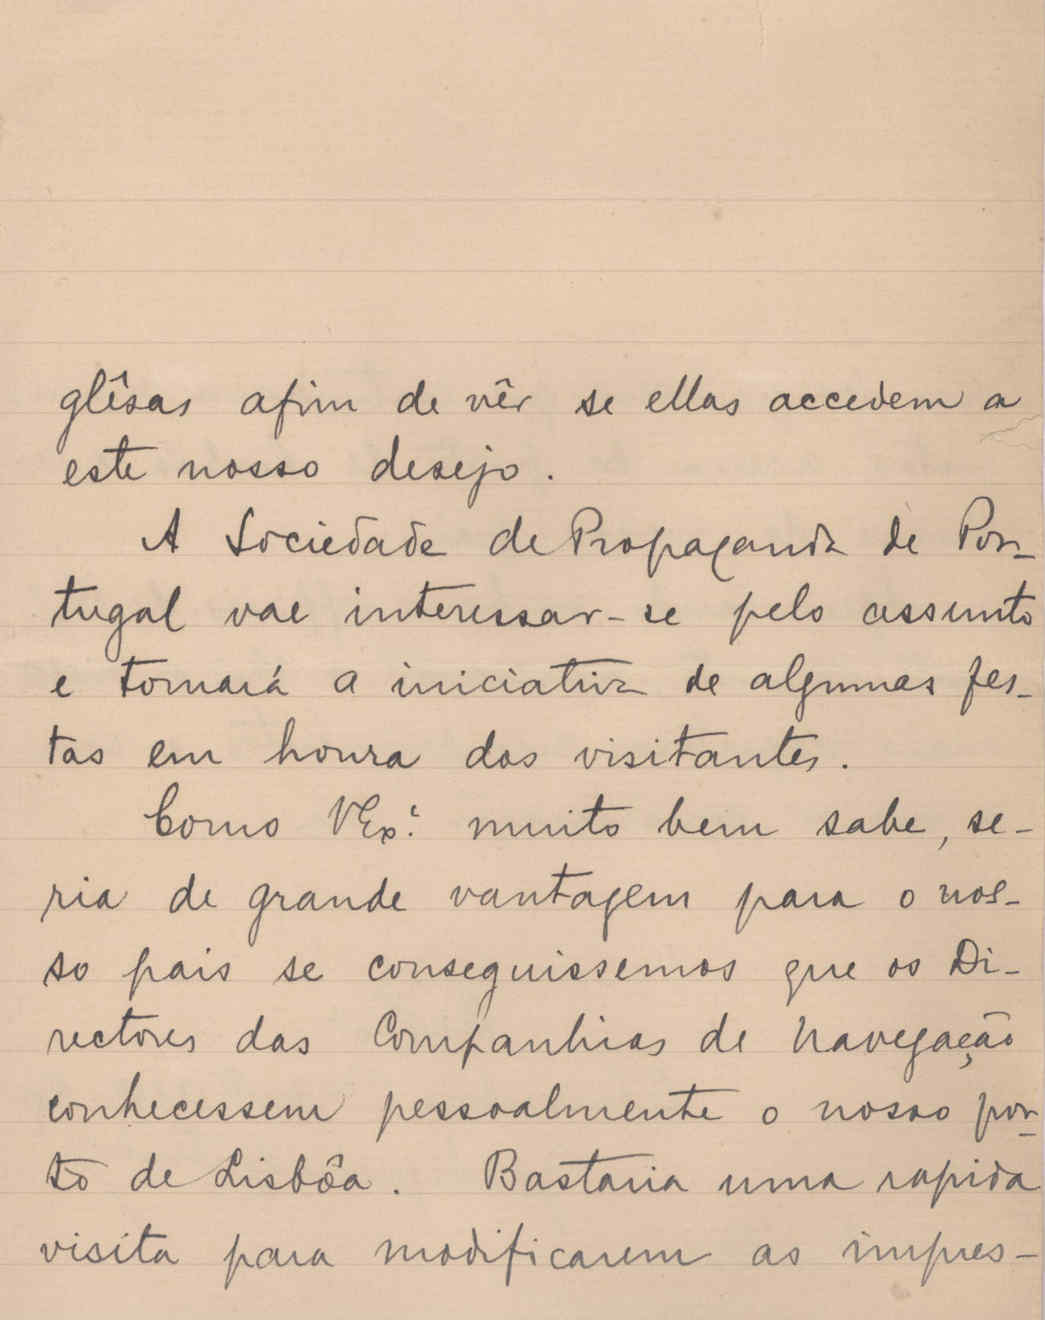 glêsas afim de vêr se ellas accedem a
este nosso desejo.
A Sociedade de Propaganda de Por-
tugal vae interessar-se pelo assunto
e tomará a iniciativa de algumas fes-
tas em honra dos visitantes.
Como VExª muito bem sabe, se-
ria de grande vantagem para o nos-
so pais se conseguissemos que os Di-
rectores das Companhias de Navegação
conhecessem pessoalmente o nosso por-
to de Lisbôa. Bastaria uma rapida
visita para modificarem as impres-